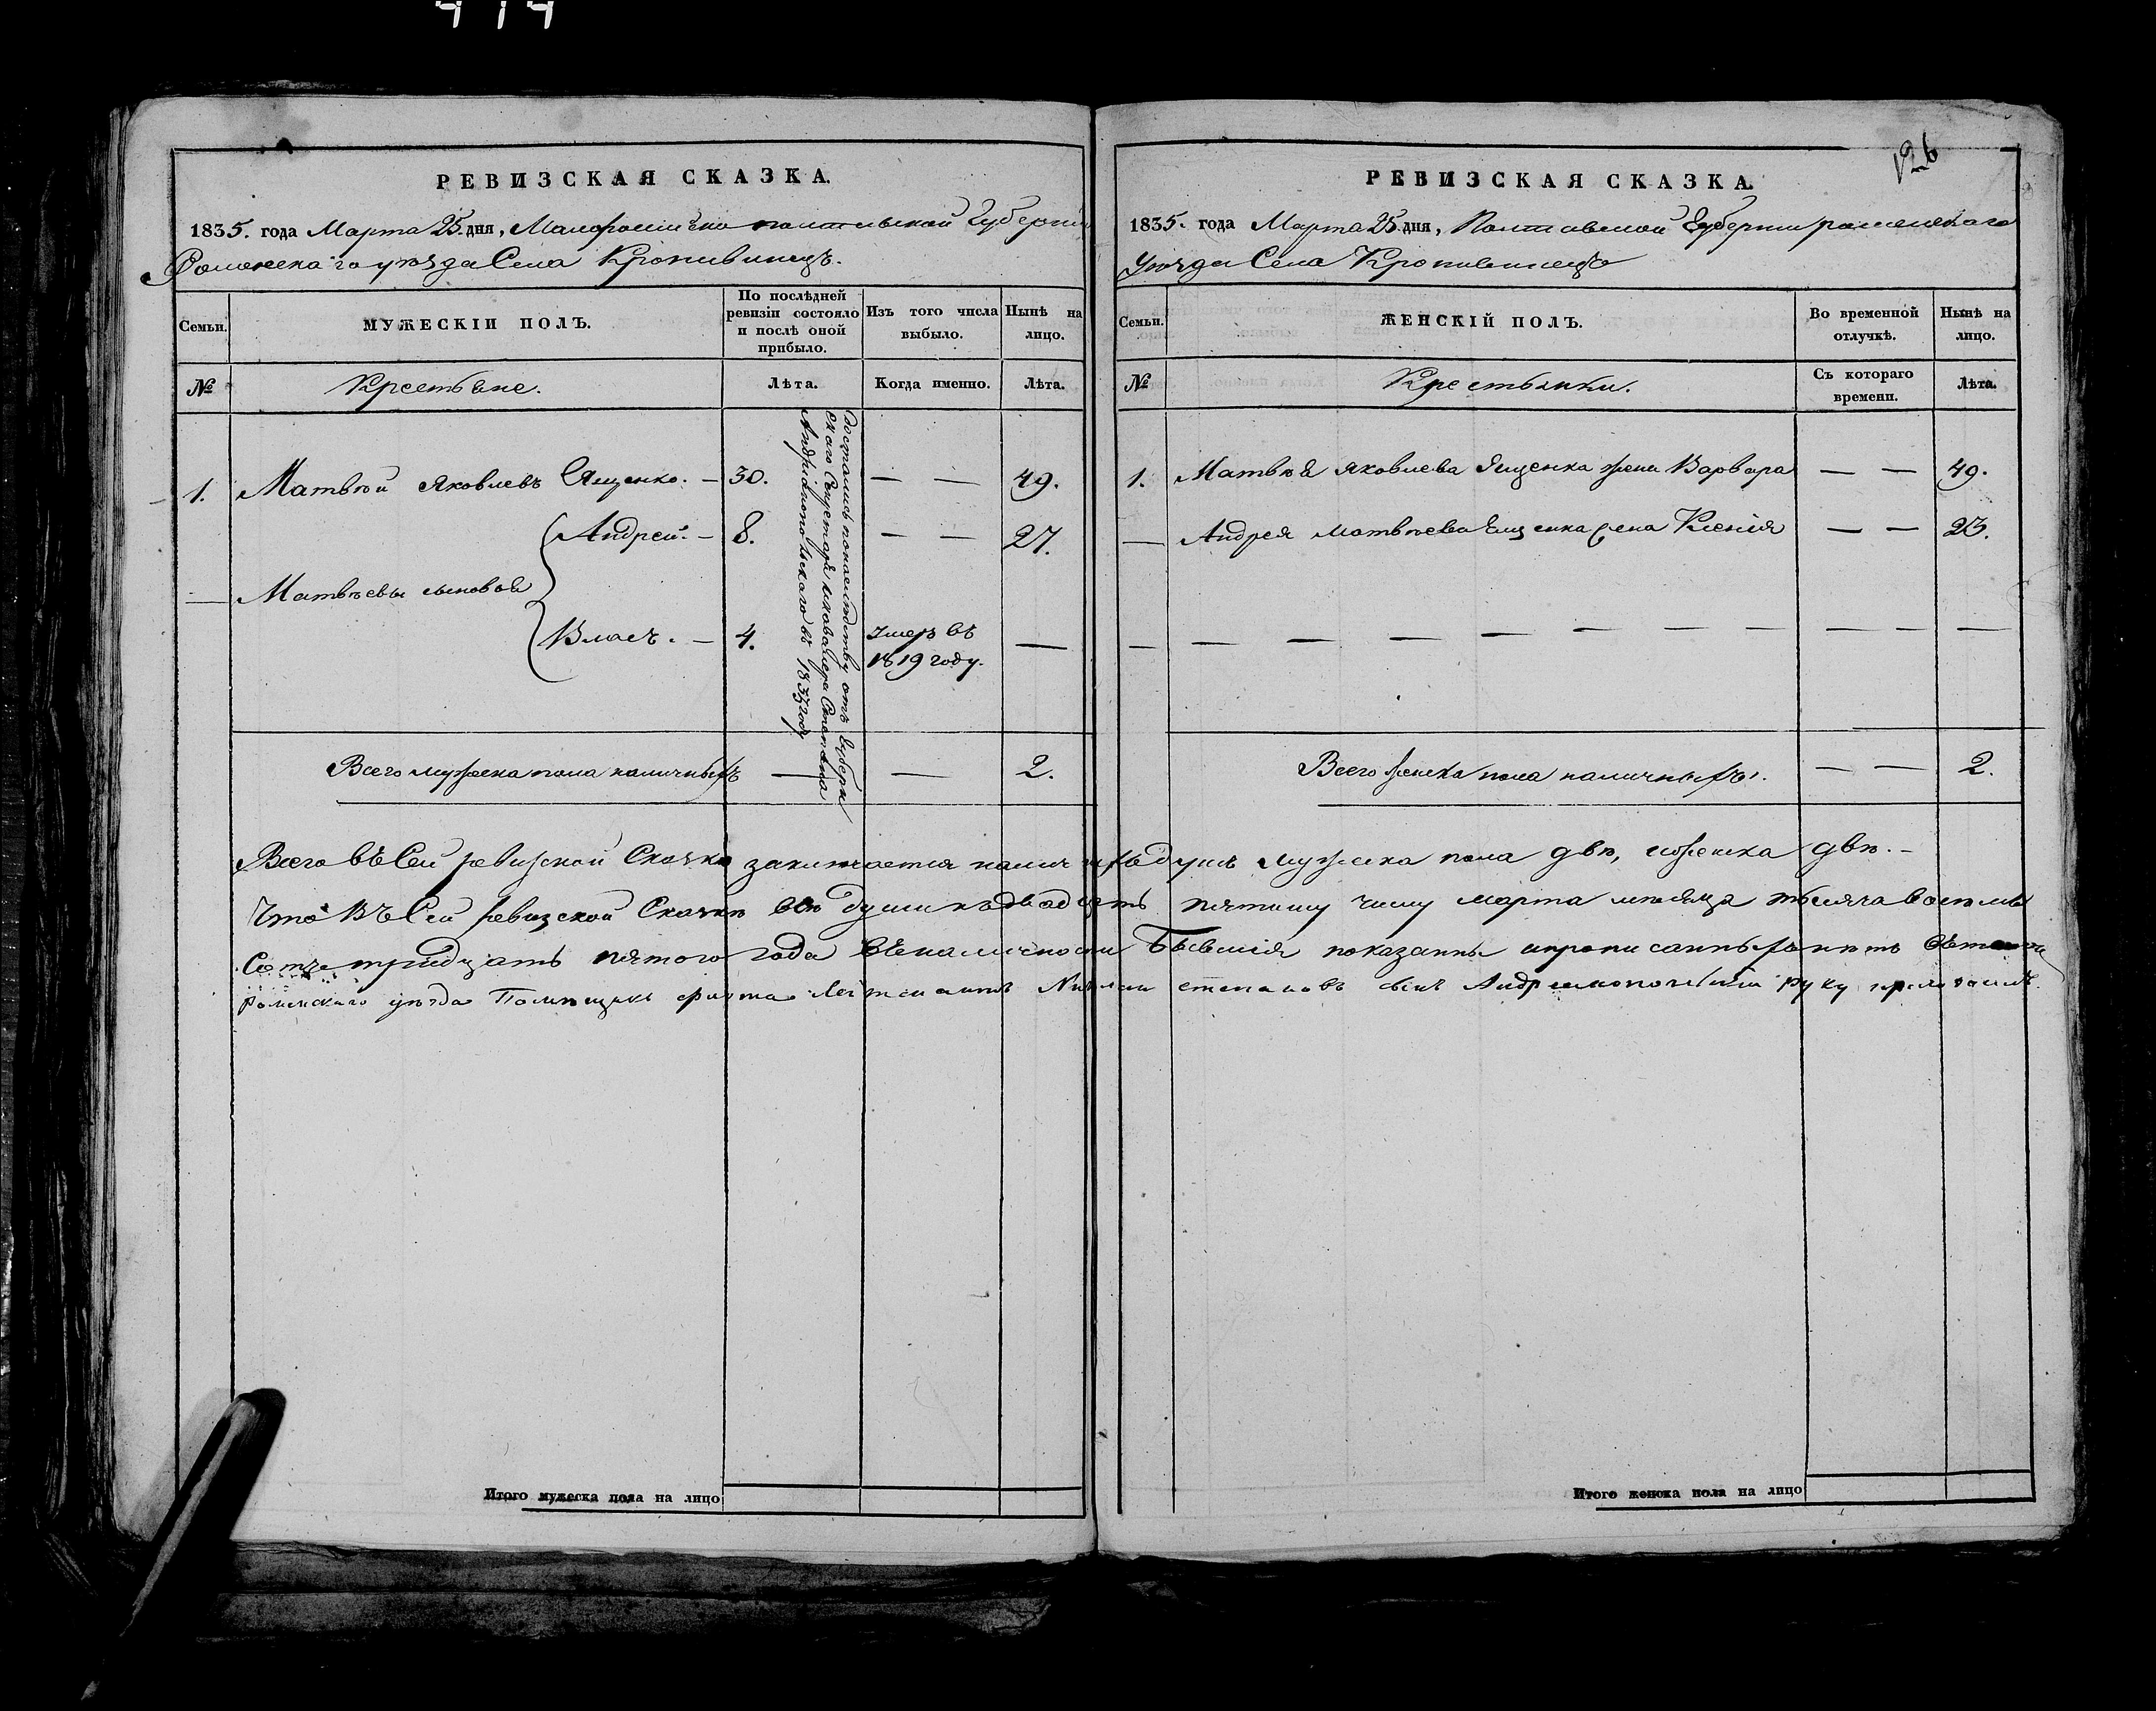 414
РЕВИЗСКАЯ СКАЗКА.
1835. года Марта 25. дня, Малороссийско полтавской Губернии
Роменскаго уѣзда Села Кропивинецъ.
Семьи.
МУЖЕСКІЙ ПОЛЪ.
По послѣдней ревизіи состояло и послѣ оной прибыло.
Изъ того числа выбыло.
Нынѣ на лицо.
№
Крестьяне.
Лѣта.
Когда именно.
Лѣта.
1. Матвѣй Яковлевъ Ященко. — 30. — — 49.
Андрей. — 8. — — 27.
— Матвѣевы сыновья
Власъ. — 4. Умеръ въ 1819 году. —
Достались понаследству отъ Губерн
скаго Секретаря Степана
Андріяшопольскаго въ 1833 году
Всего мужеска пола наличныхъ — — 2.
126
РЕВИЗСКАЯ СКАЗКА.
1835. года Марта 25. дня, Полтавской Губернии роменскаго
Уѣзда Села Кропивинецъ
Семьи.
ЖЕНСКІЙ ПОЛЪ.
Во временной отлучкѣ.
Нынѣ на лицо.
№
Крестьянки.
Съ котораго времени.
Лѣта.
1. Матвѣя Яковлева Ященка жена Варвара — — 49.
— Андрея Матвѣева Ященка жена Ксенія — — 23.
Всего женска пола наличныхъ. — — 2.
Всего въ Сей ревизской Сказкѣ наличныхъ душъ мужеска пола двѣ, иженска двѣ. —
Что въ Сей ревизской Сказкѣ всѣ души къ двадцать пятому числу марта мѣсяца тысяча восемь
Сотъ тридцать пятого года въ наличности бывшія показанны
Роменскаго уѣзда Помѣщикъ Лейтенантъ Степановъ сынъ руку приложилъ.
Итого мужеска пола на лицо
Итого женска пола на лицо